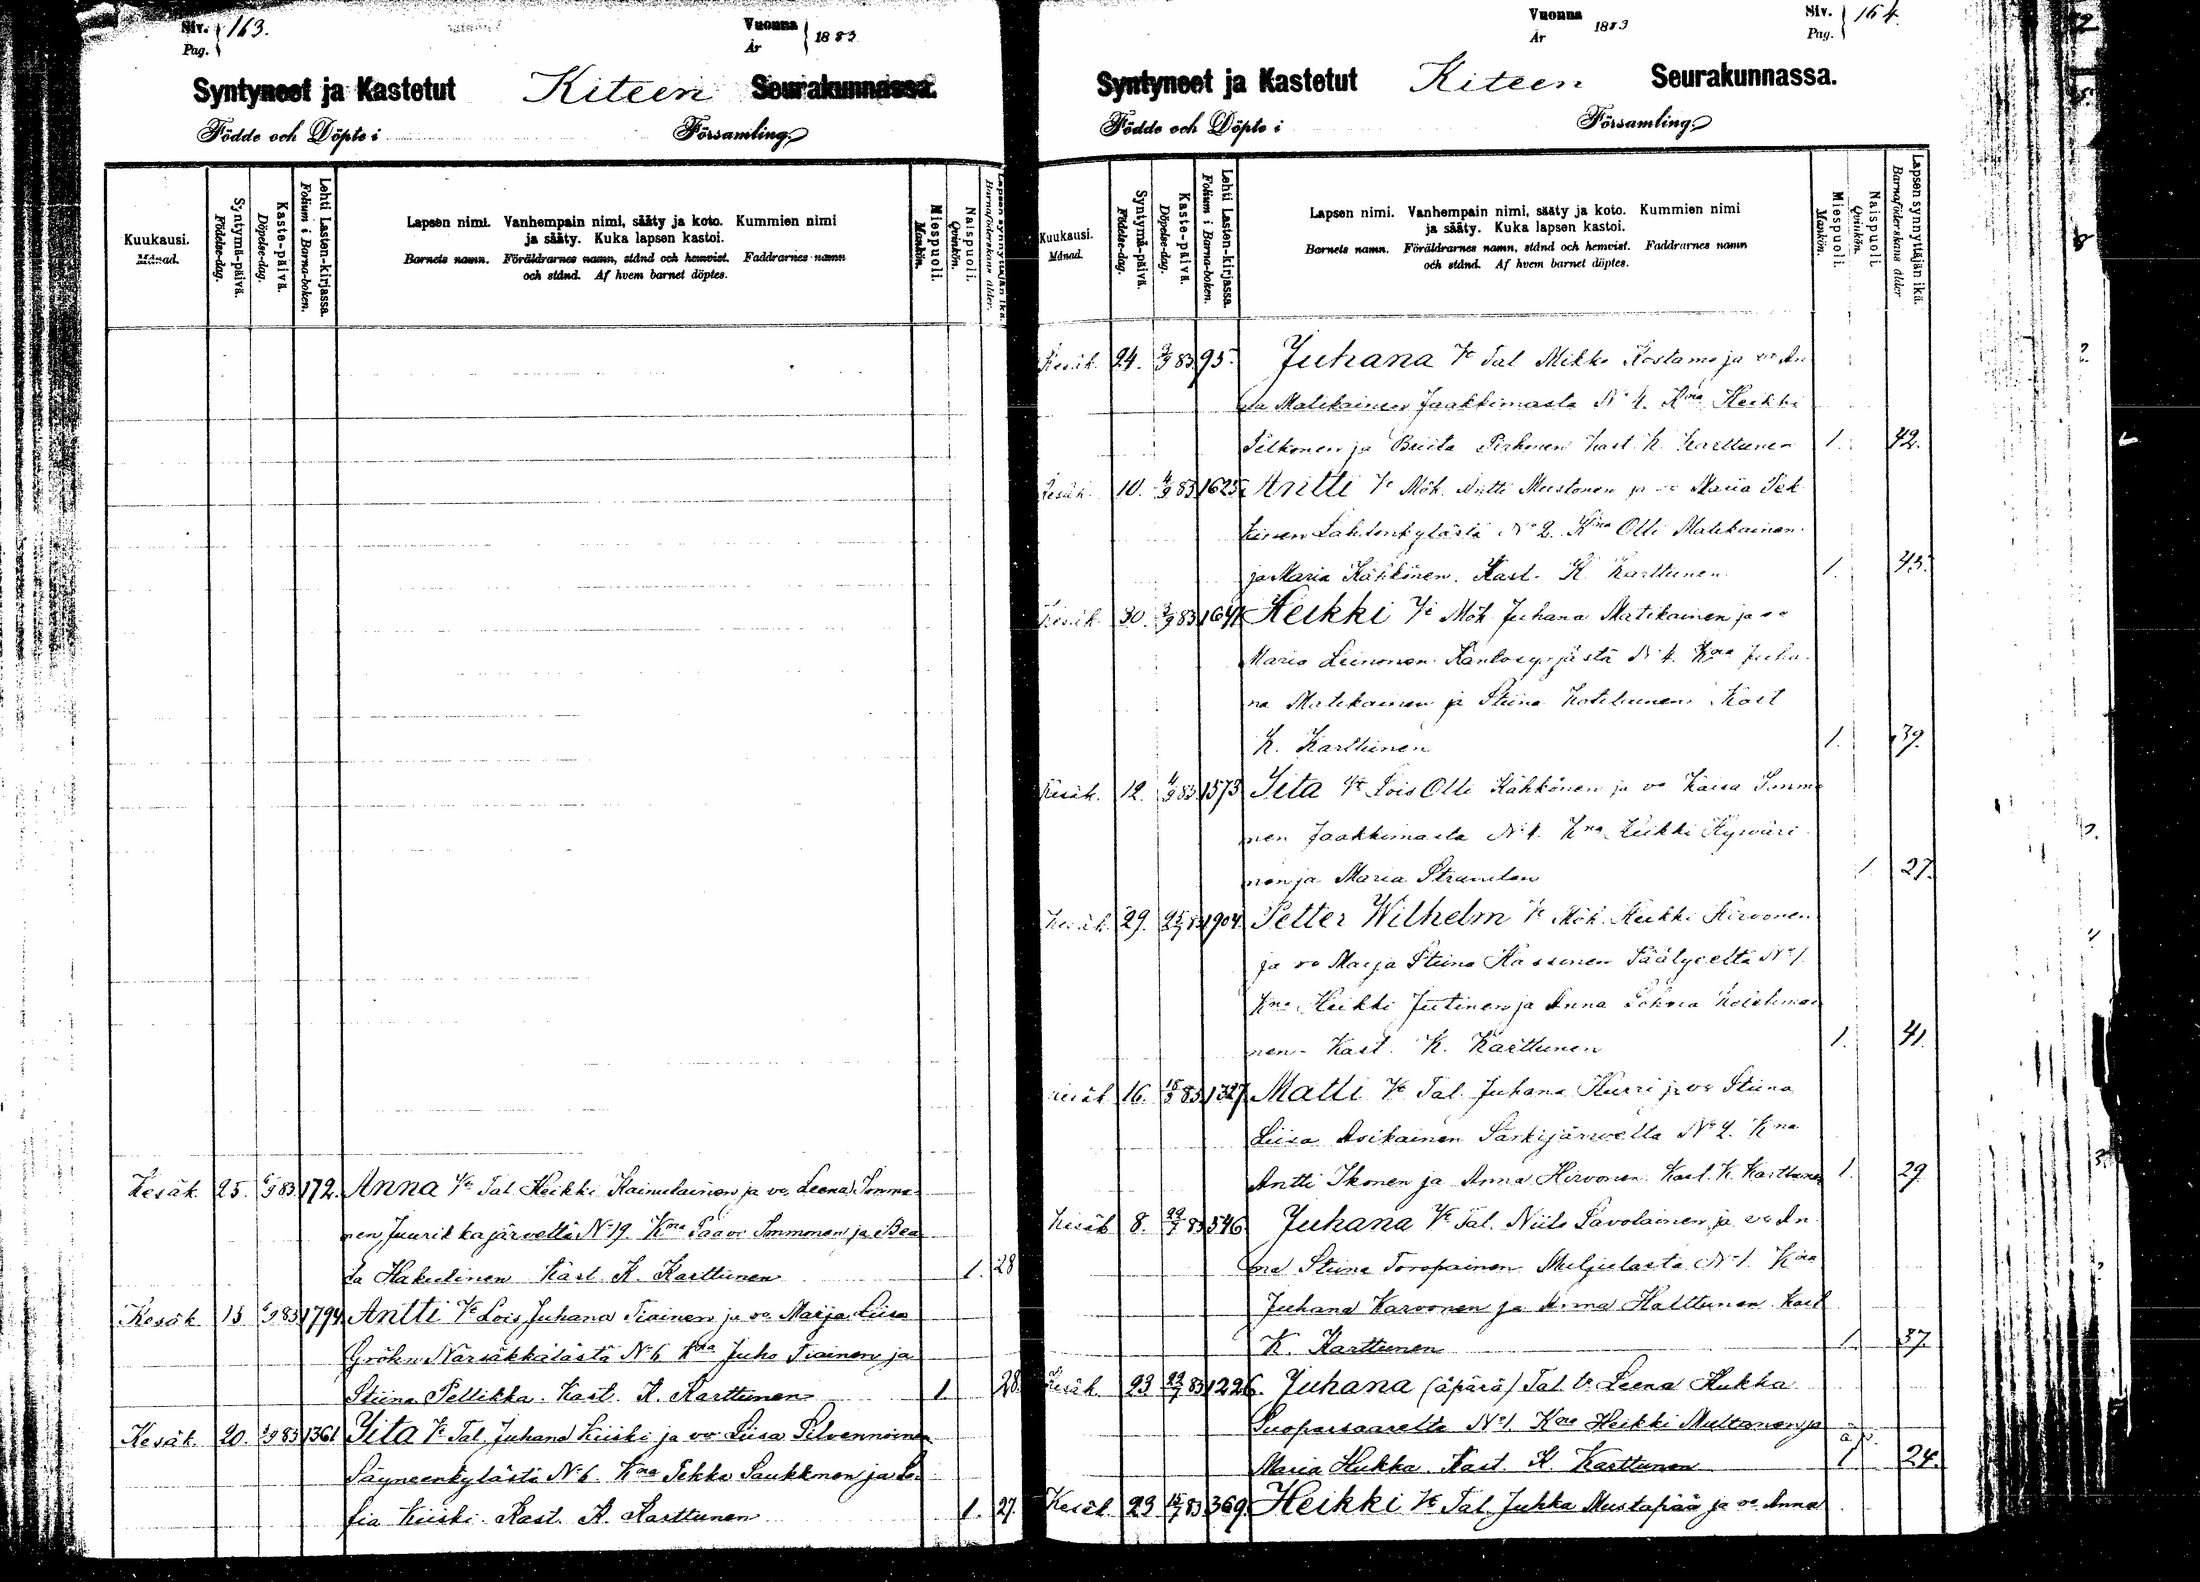 Siv. 163.
Pag.
Vuonna 1883
År
Syntyneet ja Kastetut Kiteen Seurakunnassa.
Födde och Döpte i Församling.
Kuukausi. Månad.
Syntymä-päivä. Födelse-dag.
Kaste-päivä. Döpelse-dag.
Lehti Lasten-kirjassa. Folium i Barna-boken.
Lapsen nimi. Vanhempain nimi, sääty ja koto. Kummien nimi
ja sääty. Kuka lapsen kastoi.
Barnets namn. Föräldrarnes namn, stånd och hemvist. Faddrarnes namn
och stånd. Af hvem barnet döptes.
Miespuoli. Mankön.
Naispuoli. Qvinkön.
Lapsen synnyttäjän ikä. Barnaföderskans ålder.
Kesäk. 25. 83 172. Anna Vt Tal. Heikki Kainulainen ja vo Leena Immo-
nen Juurikkajärveltä No 19. Kna Paavo Immonen ja Bea
ta Hakulinen Kast. K. Karttunen 1. 28
Kesäk. 15 83 1794 Antti Vt Lois Juhana Tiainen ja vo Marja Liisa
Gröhn Närsäkkälästä No 6 Kna Juho Tiainen ja
Stiina Pellikka. Kast. K. Karttunen 1. 28.
Kesäk. 20. 83 1361 Iita Vt Tal. Juhana Kiiski ja vo Liisa Silvennoinen
Säyneenkylästä No 6. Kna Pekka Saukkonen ja So-
fia Kiiski. Kast. K. Karttunen 1. 27.
Vuonna 1883
År
Siv. 164.
Pag.
Syntyneet ja Kastetut Kiteen Seurakunnassa.
Födde och Döpte i Församling.
Kuukausi. Månad.
Syntymä-päivä. Födelse-dag.
Kaste-päivä. Döpelse-dag.
Lehti Lasten-kirjassa. Folium i Barna-boken.
Lapsen nimi. Vanhempain nimi, sääty ja koto. Kummien nimi
ja sääty. Kuka lapsen kastoi.
Barnets namn. Föräldrarnes namn, stånd och hemvist. Faddrarnes namn
och stånd. Af hvem barnet döptes.
Miespuoli. Mankön.
Naispuoli. Qvinkön.
Lapsen synnyttäjän ikä. Barnaföderskans ålder
Kesäk. 24. 3/9 83 95. Juhana Vt Tal Mikko Kostamo ja vo An
na Matikainen Jaakkimasta No 4. Kna Heikki
Silkonen ja Briita Pirhonen Kast. K. Karttunen 1. 42.
Kesäk. 10. 4/9 83 1625 Antti Vt Möh. Antti Mustonen ja vo Maria Pek
kinen Lahdenkylästä No 2. Kna Olli Matikainen
ja Maria Kähkönen. Kast. K. Karttunen 1. 43.
Kesäk. 30. 3/9 83 1641 Heikki Vt Möh. Juhana Matikainen ja vo
Maria Leinonen Kantosyrjästä No 4. Kna Juha-
na Matikainen ja Stiina Kast
K. Karttunen 1. 39.
Kesäk. 12. 4/9 83 1573 Iita Vt Lois Olli Kähkönen ja vo Kaisa Immo
nen Jaakkimasta No 4. Kna Heikki
nen ja Maria 1 27.
Kesäk. 29. 1904. Petter Wilhelm Vt Möh. Heikki Hirvonen
ja vo Marja Stiina Kassinen Päätyeeltä No 1
Kna Heikki Jutinen ja Anna
nen. Kast. K. Karttunen 1. 41.
Kesäk 16. 83 1327 Matti Vt Tal. Juhana Kurri ja vo Stiina
Liisa Asikainen Särkijärveltä No 2. Kna
Antti Ikonen ja Anna Hirvonen. Kast. K. Karttunen 1. 29
Kesäk 8. 22/7 83 546 Juhana Vt Tal. Niilo Savolainen ja vo An
na Stiina Toropainen Muljulasta No 1. Kna
Juhana Karvonen ja Anna Halttunen Kast
K. Karttunen 1. 37.
Kesäk. 23 22/7 83 1226. Juhana (äpärä) Tal. tr. Leena Hukka
Suoparsaarelta No 1. Kna Heikki Multanen ja
Maria Hukka. Kast. K. Karttunen äp. 1 24.
Kesäk. 23 15/7 83 369. Heikki Vt Tal. Jukka Mustapää ja vo Anna